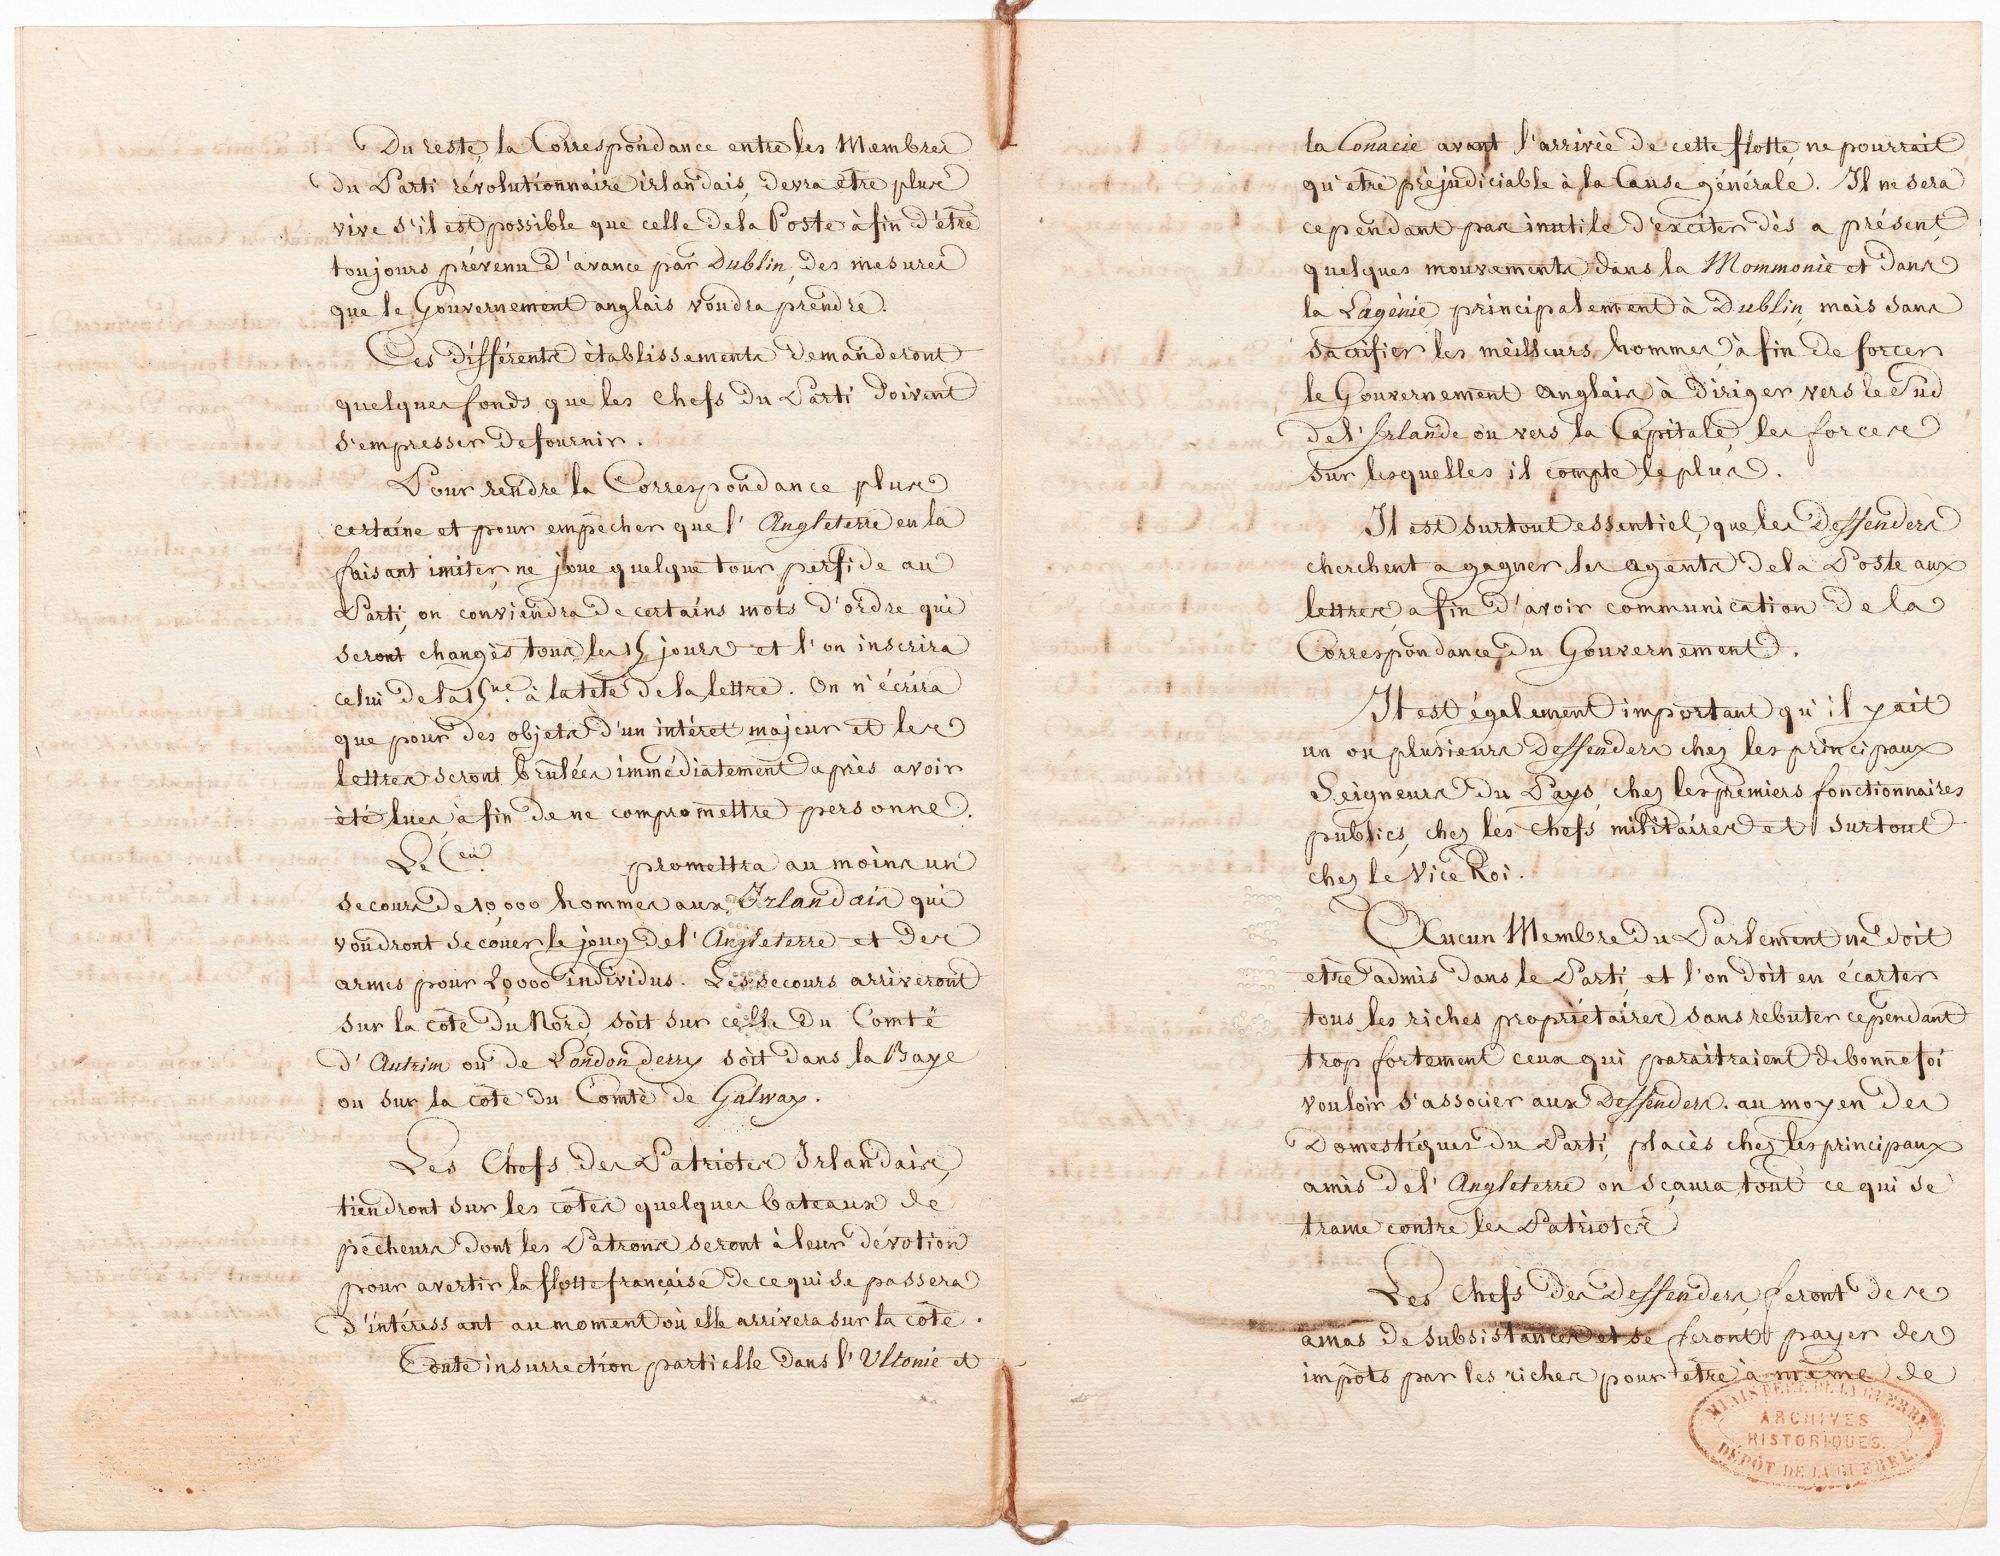 Du reste, la Correspondance entre les Membres
du Parti révolutionnaire irlandais, devra etre plus
vive s'il est possible que celle de la Poste à fin d'être
toujours prévenu d'avance par Dublin, des mesures
que le Gouvernement anglais voudra prendre.
Ces différents établissements demanderont
quelques fonds que les Chefs du Parti doivent
s'empresser de fournir.
Pour rendre la Correspondance plus
certaine et pour empecher que l'Angleterre en la
faisant imiter, ne joue quelque tour perfide au
Parti, on conviendra de certains mots d'ordre qui
seront changés tous les 15 jours et l'on inscrira
celui de la 15.ne à la tete de la lettre. On n'écrira
que pour des objets d'un intéret majeur et les
lettres seront brulées immédiatement après avoir
été lues à fin de ne compromettre personne.
Le C.en promettra au moins un
secours de 10,000 hommes aux Irlandais qui
voudront secouer le joug de l'Angleterre et des
armes pour 20,000 individus. Les secours arriveront
sur la cote du Nord, soit sur celle du Comté
d'Autrim ou de Londonderry soit dans la Baye
ou sur la cote du Comté de Galway.
Les Chefs des Patriotes Irlandais,
tiendront sur les cotes quelques bateaux de
pecheurs dont les Patrons seront à leur dévotion
pour avertir la flotte française de ce qui se passera
d'intéressant au moment où elle arrivera sur la cote.
Toute insurrection partielle dans l'Ultonie et
la Conacie avant l'arrivée de cette flotte, ne pourrait
qu'etre préjudiciable à la Cause générale. Il ne sera
cependant pas inutile d'exciter dès a présent
quelques mouvements dans la Mommonie et dans
la Lagénie, principalement à Dublin, mais sans
sacrifier les meilleurs hommes à fin de forcer
le Gouvernement Anglais à diriger vers le Sud
de l'Irlande ou vers la Capitale, les forces
sur lesquelles il compte le plus.
Il est surtout essentiel, que les Deffenders
cherchent a gagner les agents de la Poste aux
lettres, a fin d'avoir communication de la
Correspondance du Gouvernement.
Il est également important qu'il y ait
un ou plusieurs Deffenders chez les principaux
Seigneurs du Pays, chez les premiers fonctionnaires
publics, chez les chefs militaires et surtout
chez le Vice Roi.
Aucun Membre du Parlement ne doit
etre admis dans le Parti, et l'on doit en écarter
tous les riches propriétaires sans rebuter cependant
trop fortement ceux qui paraîtraient de bonne foi
vouloir s'associer aux Deffenders. au moyen des
Domestiques du Parti, placés chez les principaux
amis de l'Angleterre on sçaura tout ce qui se
trame contre les Patriotes.
Les Chefs des Deffenders, feront des
amas de subsistances et se feront payer des
impôts par les riches pour être à même de
MINISTÈRE DE LA GUERRE
ARCHIVES
HISTORIQUES.
DÉPÔT DE LA GUERRE.